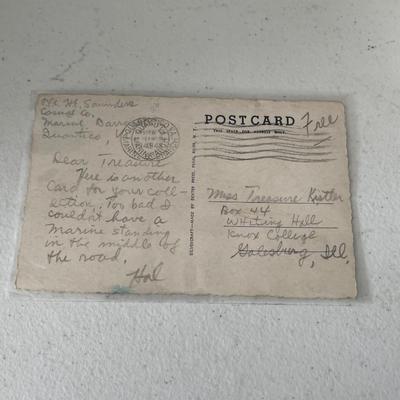 Pfc H.E. Saunders
Casual Co.
Marine Barracks
Quantico,
Dear Treasure
Here is another
Card for your coll-
ection. Too bad I
couldn't have a
Marine standing
in the middle of
the road.
Hal
1943
POST CARD
THIS SPACE FOR ADDRESS ONLY.
Free
Miss Treasure Kistler
Box 44
Whiting Hall
Knox College
Galesburg, Ill.